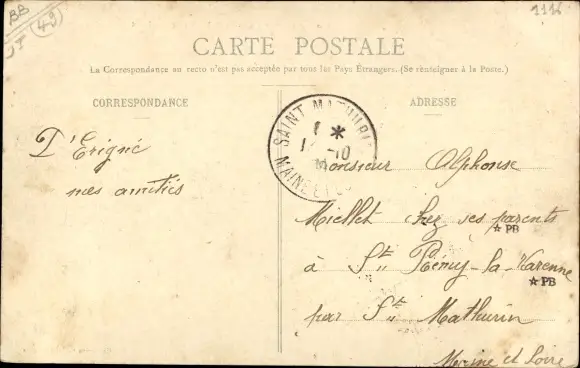 BB
(49)
1116
CARTE POSTALE
La Correspondance au recto n'est pas acceptée par tous les Pays Étrangers. (Se renseigner à la Poste.)
CORRESPONDANCE
ADRESSE
SAINT MATHURIN
MAINE ET LOIRE
D'Erigné
mes amitiés
Monsieur Alphonse
Miellet chez ses parents
☆ PB
à St Rémy-la-Varenne
☆ PB
par St Mathurin
Maine et Loire